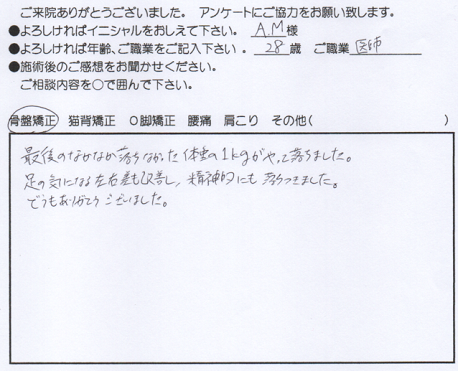 ご来院ありがとうございました。 アンケートにご協力をお願い致します。
●よろしければイニシャルをおしえて下さい。 A.M 様
●よろしければ年齢、ご職業をご記入下さい 。 28 歳 ご職業 医師
●施術後のご感想をお聞かせください。
ご相談内容を○で囲んで下さい。
骨盤矯正 猫背矯正 O脚矯正 腰痛 肩こり その他( )
最後のなかなか落ちなかった体重の1kgがやっと落ちました。
足の気になる左右差も改善し、精神的にも落ちつきました。
どうもありがとうございました。